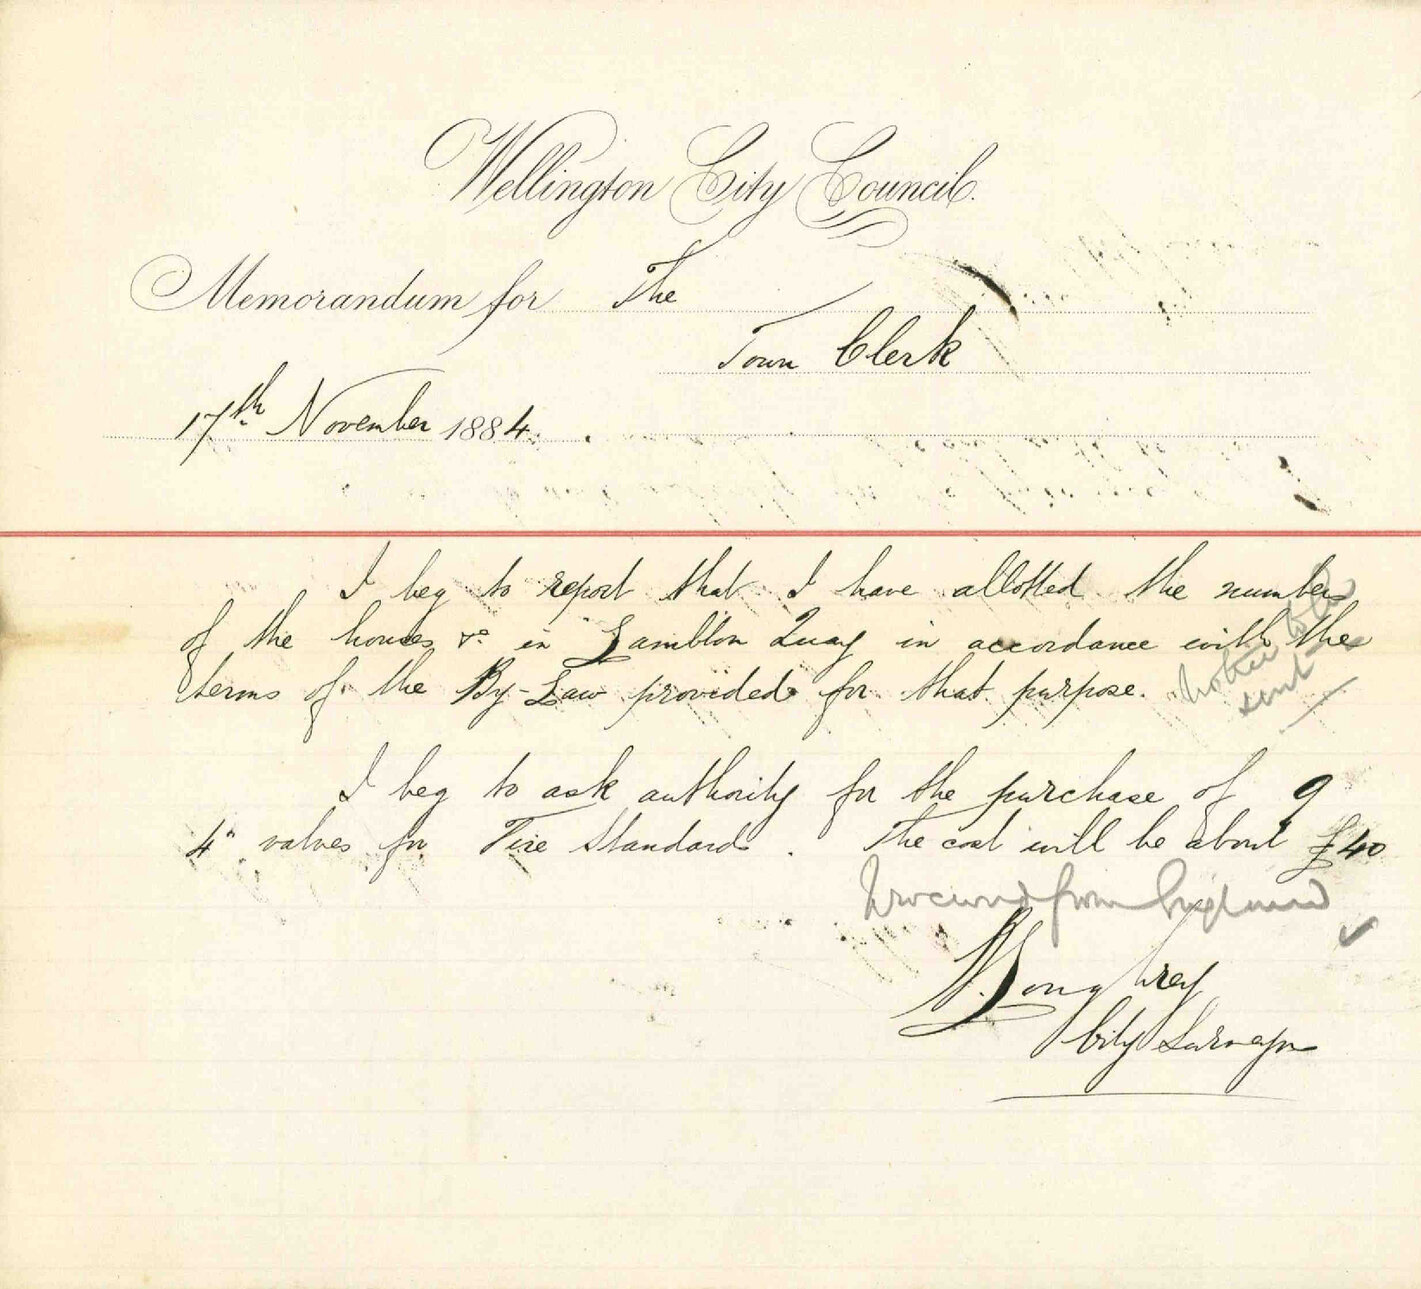 Wellington City Council.
Memorandum for The
Town Clerk
17th November 1884.
I beg to report that I have allotted the numbers
of the houses &c in Lambton Quay in accordance with the
terms of the By-Law provided for that purpose.
Notice to be
sent
I beg to ask authority for the purchase of 9
4" valves for Fire Standards. The cost will be about £40
Procured from England
City Surveyor